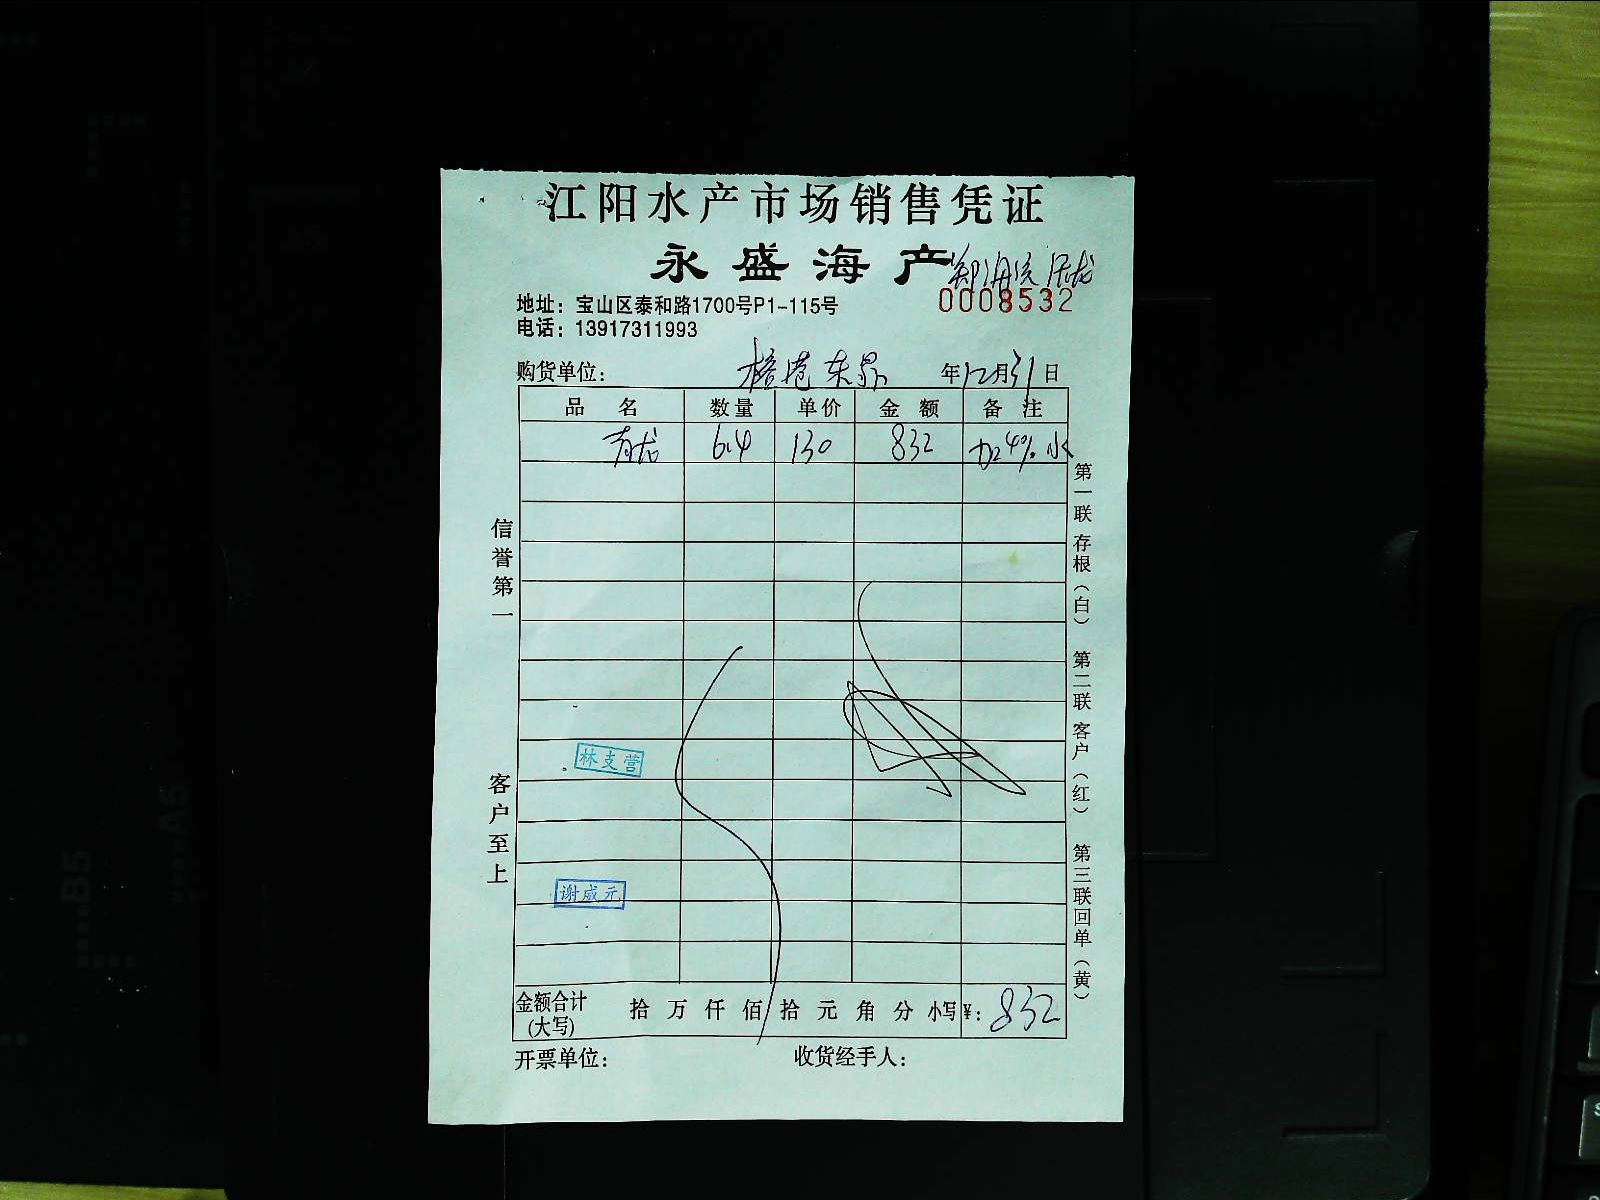 江阳水产市场销售凭证
永盛海产
地址：宝山区泰和路1700号P1-115号
0008532
电话：13917311993
购货单位： 年12月31日
品名 数量 单价 金额 备注
青龙 6.4 130 832 加4%水
信誉第一
客户至上
第一联存根（白） 第二联客户（红） 第三联回单（黄）
林支营
谢威元
金额合计(大写) 拾万仟佰拾元角分 小写¥：832
开票单位： 收货经手人：
A6
B5